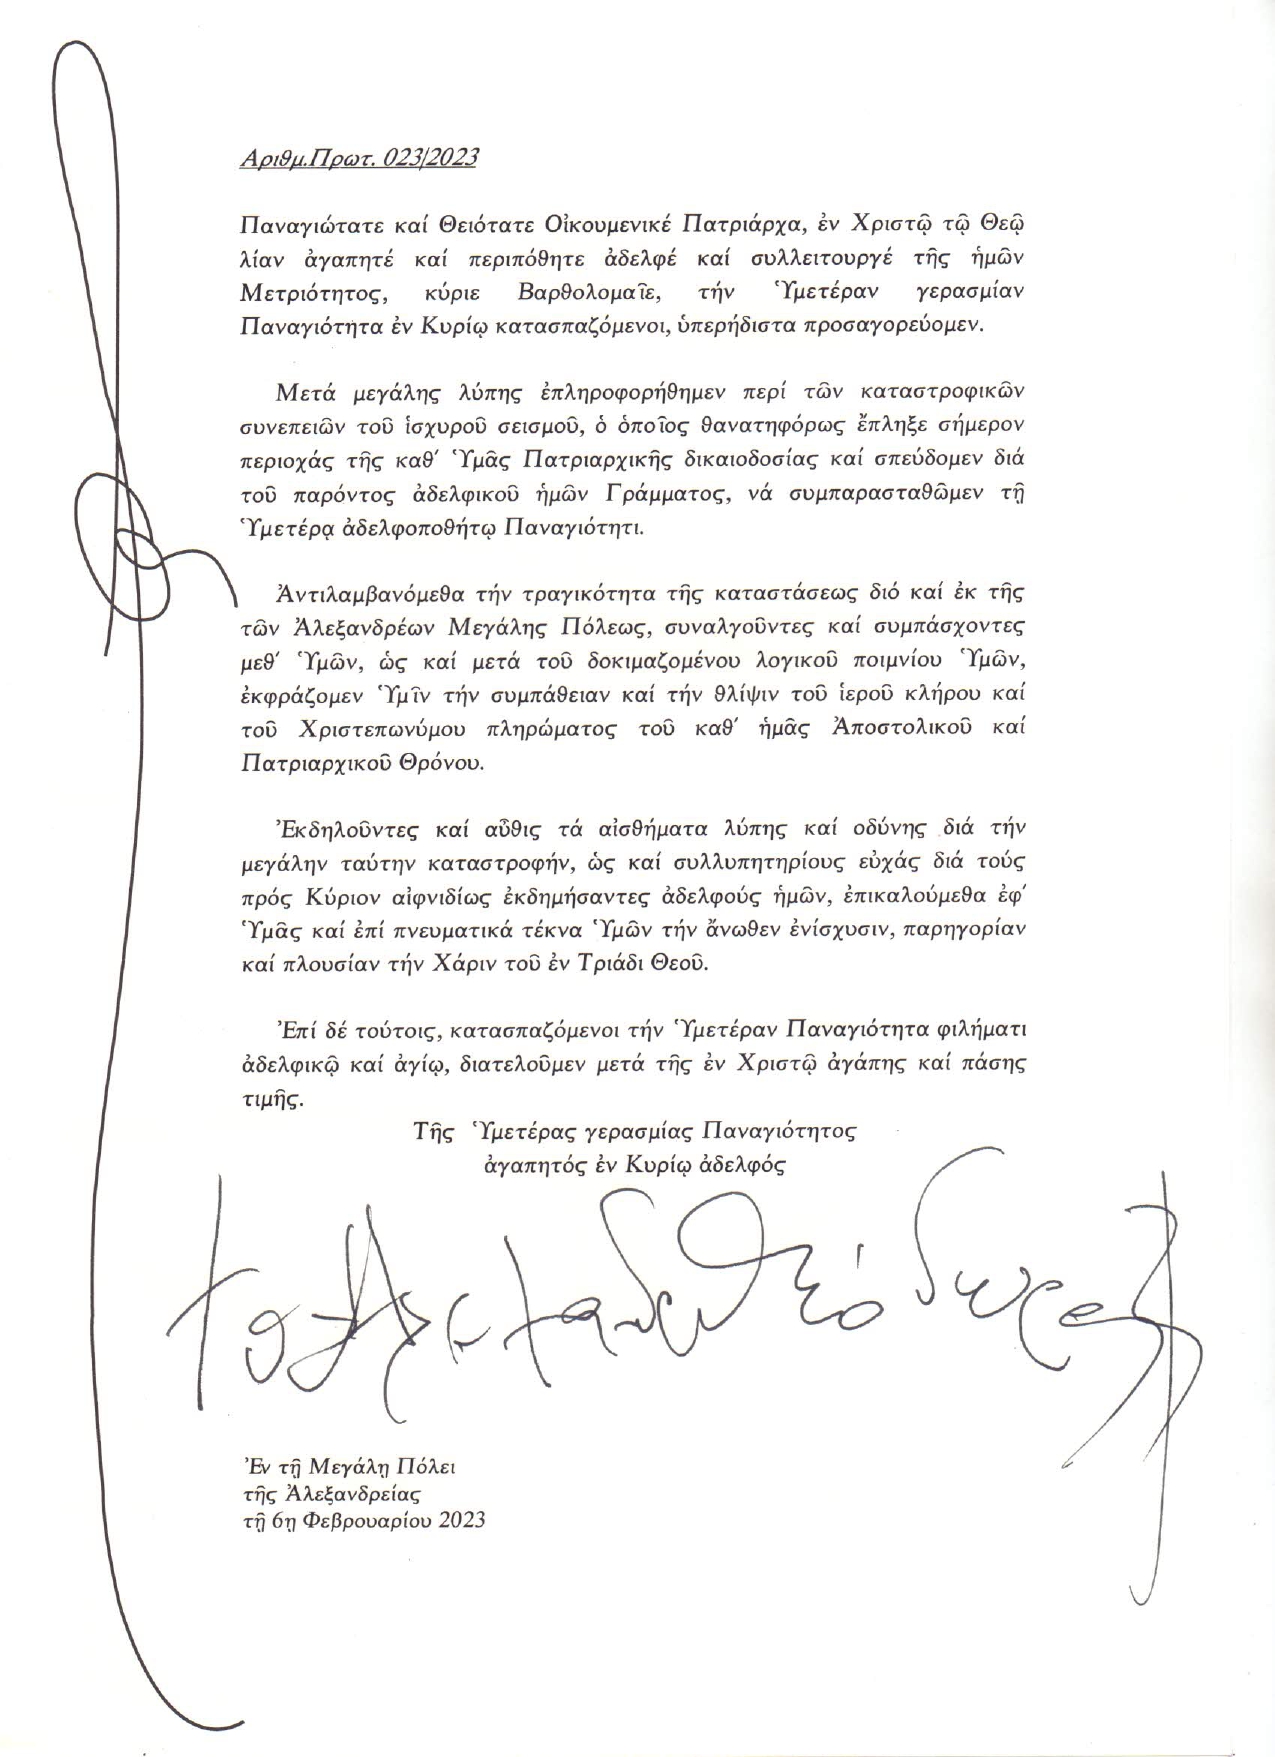 Αριθμ.Πρωτ. 023/2023
Παναγιώτατε καί Θειότατε Οἰκουμενικέ Πατριάρχα, ἐν Χριστῷ τῷ Θεῷ
λίαν ἀγαπητέ καί περιπόθητε ἀδελφέ καί συλλειτουργέ τῆς ἡμῶν
Μετριότητος, κύριε Βαρθολομαῖε, τήν Ὑμετέραν γερασμίαν
Παναγιότητα ἐν Κυρίῳ κατασπαζόμενοι, ὑπερήδιστα προσαγορεύομεν.
Μετά μεγάλης λύπης ἐπληροφορήθημεν περί τῶν καταστροφικῶν
συνεπειῶν τοῦ ἰσχυροῦ σεισμοῦ, ὁ ὁποῖος θανατηφόρως ἔπληξε σήμερον
περιοχάς τῆς καθ’ Ὑμᾶς Πατριαρχικῆς δικαιοδοσίας καί σπεύδομεν διά
τοῦ παρόντος ἀδελφικοῦ ἡμῶν Γράμματος, νά συμπαρασταθῶμεν τῇ
Ὑμετέρᾳ ἀδελφοποθήτῳ Παναγιότητι.
Ἀντιλαμβανόμεθα τήν τραγικότητα τῆς καταστάσεως διό καί ἐκ τῆς
τῶν Ἀλεξανδρέων Μεγάλης Πόλεως, συναλγοῦντες καί συμπάσχοντες
μεθ’ Ὑμῶν, ὡς καί μετά τοῦ δοκιμαζομένου λογικοῦ ποιμνίου Ὑμῶν,
ἐκφράζομεν Ὑμῖν τήν συμπάθειαν καί τήν θλίψιν τοῦ ἱεροῦ κλήρου καί
τοῦ Χριστεπωνύμου πληρώματος τοῦ καθ’ ἡμᾶς Ἀποστολικοῦ καί
Πατριαρχικοῦ Θρόνου.
Ἐκδηλοῦντες καί αὖθις τά αἰσθήματα λύπης καί οδύνης διά τήν
μεγάλην ταύτην καταστροφήν, ὡς καί συλλυπητηρίους εὐχάς διά τούς
πρός Κύριον αἰφνιδίως ἐκδημήσαντες ἀδελφούς ἡμῶν, ἐπικαλούμεθα ἐφ’
Ὑμᾶς καί ἐπί πνευματικά τέκνα Ὑμῶν τήν ἄνωθεν ἐνίσχυσιν, παρηγορίαν
καί πλουσίαν τήν Χάριν τοῦ ἐν Τριάδι Θεοῦ.
Ἐπί δέ τούτοις, κατασπαζόμενοι τήν Ὑμετέραν Παναγιότητα φιλήματι
ἀδελφικῷ καί ἁγίῳ, διατελοῦμεν μετά τῆς ἐν Χριστῷ ἀγάπης καί πάσης
τιμῆς.
Τῆς Ὑμετέρας γερασμίας Παναγιότητος
ἀγαπητός ἐν Κυρίῳ ἀδελφός
Ἐν τῇ Μεγάλῃ Πόλει
τῆς Ἀλεξανδρείας
τῇ 6ῃ Φεβρουαρίου 2023